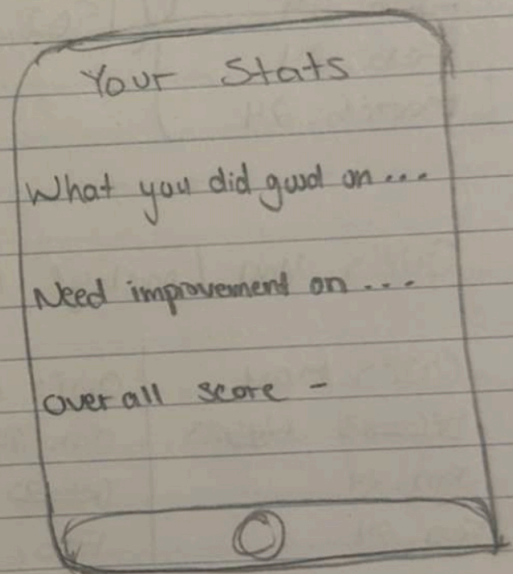 Your Stats
What you did good on...
Need improvement on ...
over all score -